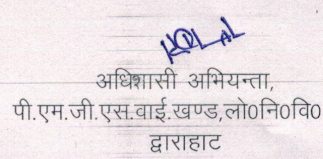 अधिशासी अभियन्ता,
पी.एम.जी.एस.वाई.खण्ड,लो0नि0वि0
द्वाराहाट